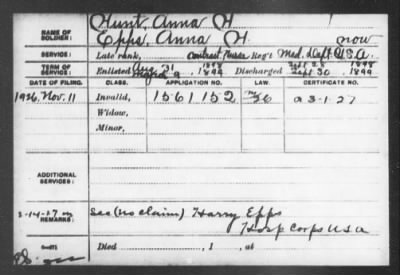 Hunt, Anna H.
NAME OF SOLDIER: Epps, Anna H. now
SERVICE: Late rank, Contract Nurse Reg't Med. Dept. U.S.A.
Aug. 31 1898 Sept 28 1898
TERM OF SERVICE: Enlisted 9, 1899 Discharged Sept 30, 1899
DATE OF FILING. CLASS. APPLICATION NO. LAW. CERTIFICATE NO.
1926, Nov. 11 Invalid, 1561152 a 3-1-27
Widow,
Minor,
ADDITIONAL SERVICES:
2-14-27 See (no claim) Harry Epps
REMARKS: Hosp Corps U.S.A
Died , 1 , at